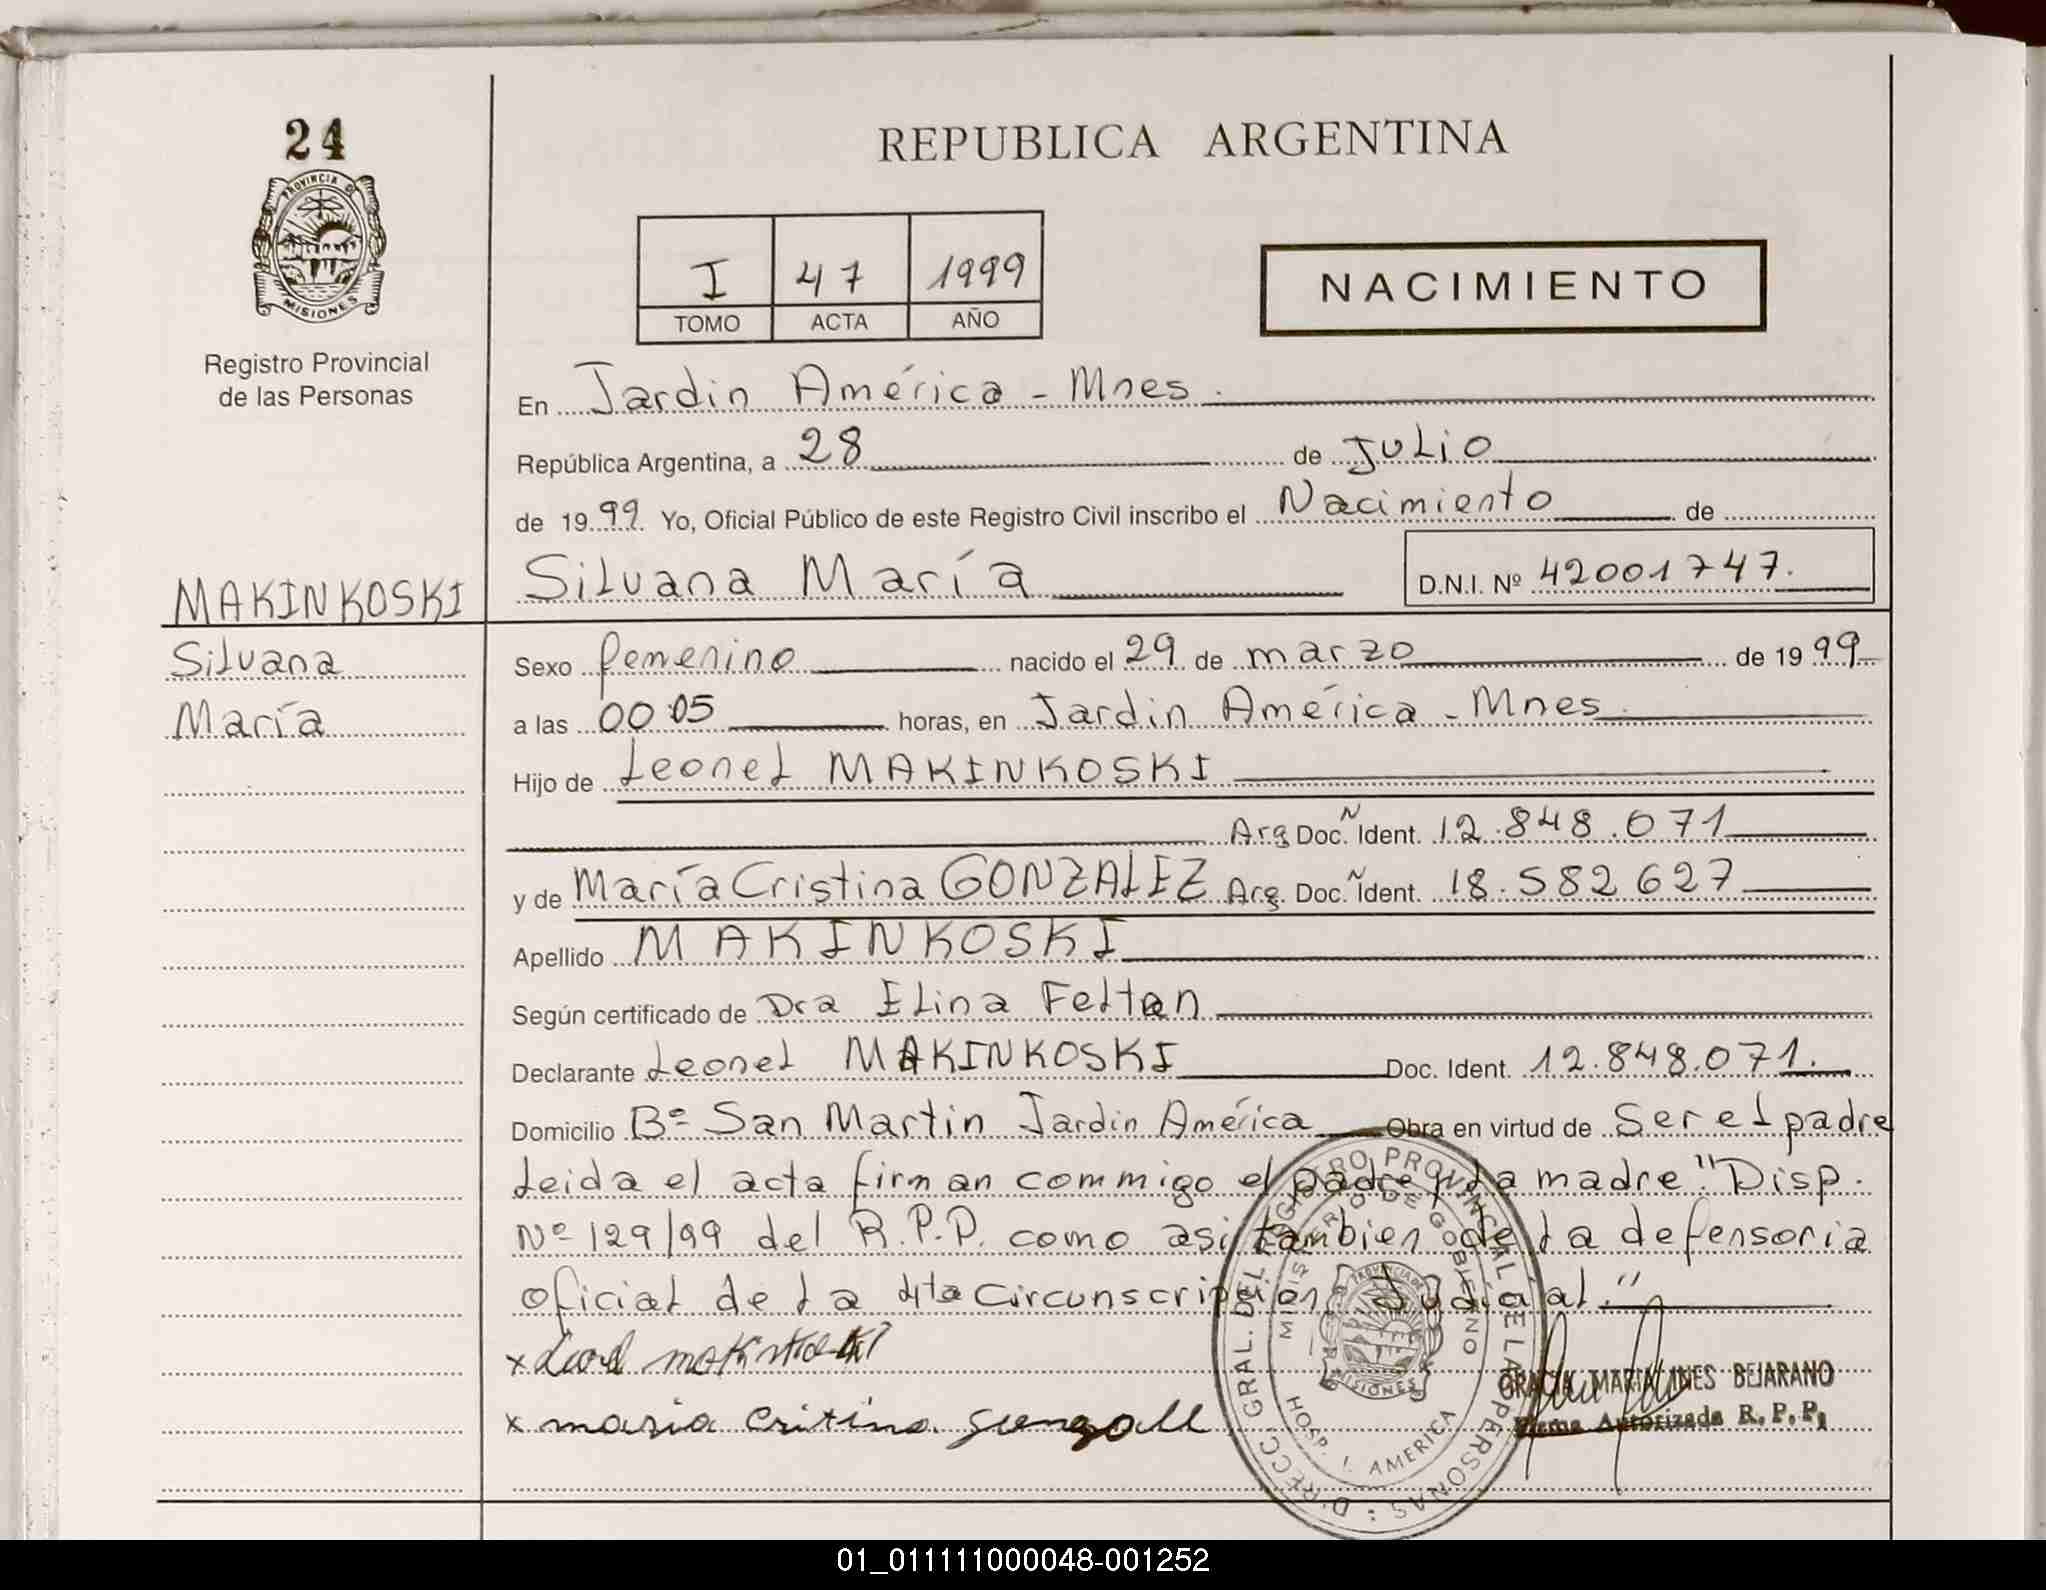 24
PROVINCIA DE
MISIONES
Registro Provincial
de las Personas
REPUBLICA ARGENTINA
I 47 1999
TOMO ACTA AÑO
NACIMIENTO
En Jardin América - Mnes.
República Argentina, a 28 de JULIO
de 1999 Yo, Oficial Público de este Registro Civil inscribo el Nacimiento de
Silvana María D.N.I. Nº 42001747.
MAKINKOSKI
Silvana
María
Sexo femenino nacido el 29 de marzo de 1999
a las 00:05 horas, en Jardin América - Mnes.
Hijo de Leonel MAKINKOSKI
Arg Doc. Ñ Ident. 12.848.071
y de María Cristina GONZALEZ Arg. Doc. Ñ Ident. 18.582627
Apellido MAKINKOSKI
Según certificado de Dra Elina Feltan
Declarante Leonel MAKINKOSKI Doc. Ident. 12.848.071.
Domicilio Bº San Martin Jardin América Obra en virtud de Ser el padre
Leida el acta firman commigo el padre y La madre "Disp.
Nº 129/99 del R.P.P. como asi tambien de La defensoria
oficial de La 4ta Circunscripción Judicial."
x Leonel makinkoski
x maria Critina
GRACIA MARIA INES BEJARANO
Firma Autorizada R. P. P.
DIRECC. GRAL. DEL REGISTRO PROVINCIAL DE LAS PERSONAS
MINISTERIO DE GOBIERNO
PROVINCIA DE
MISIONES
HOSP. J. AMERICA
01_011111000048-001252